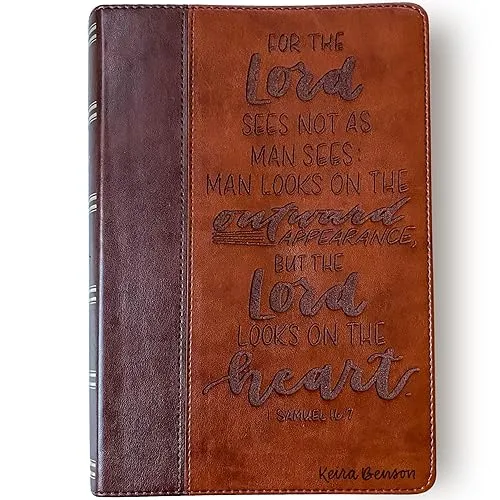 FOR THE
Lord
SEES NOT AS
MAN SEES:
MAN LOOKS ON THE
outward
APPEARANCE,
BUT THE
Lord
LOOKS ON THE
heart.
1 SAMUEL 16:7
Keira Benson